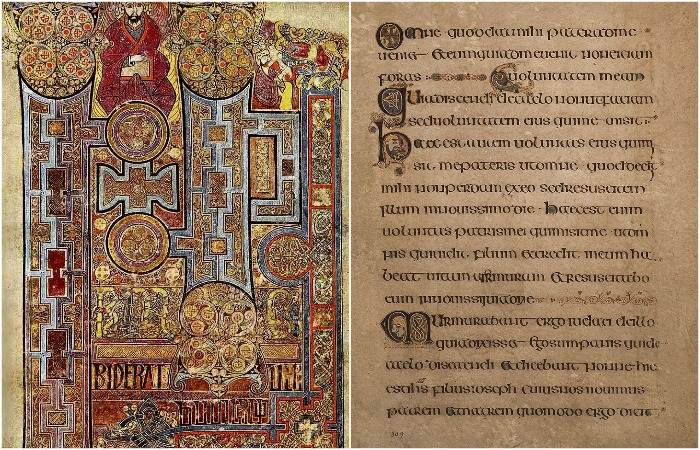 BIDERAT UE
Omne quod dat mihi pater ad me
ueniet et eum qui ad me uenit non eiciam
foras uoluntatem meam
Quia discendi de caelo non ut faciam
sed uoluntatem eius qui me misit
Haec est autem uoluntas eius qui mi
sit me pateris ut omne quod dedit
mihi non perdam ex eo sed resuscitem
illum in nouissimo die haec est enim
uoluntas patris mei qui misit me ut om
nis qui uidet filium et credit in eum ha
beat uitam aeternam et resuscitabo
eum in nouissimo die
Murmurabant ergo iudaei de illo
quia dixisset ego sum panis qui de
caelo discendi et dicebant nonne hic
est ihs filius ioseph cuius nos nouimus
patrem et matrem quomodo ergo dicit
309